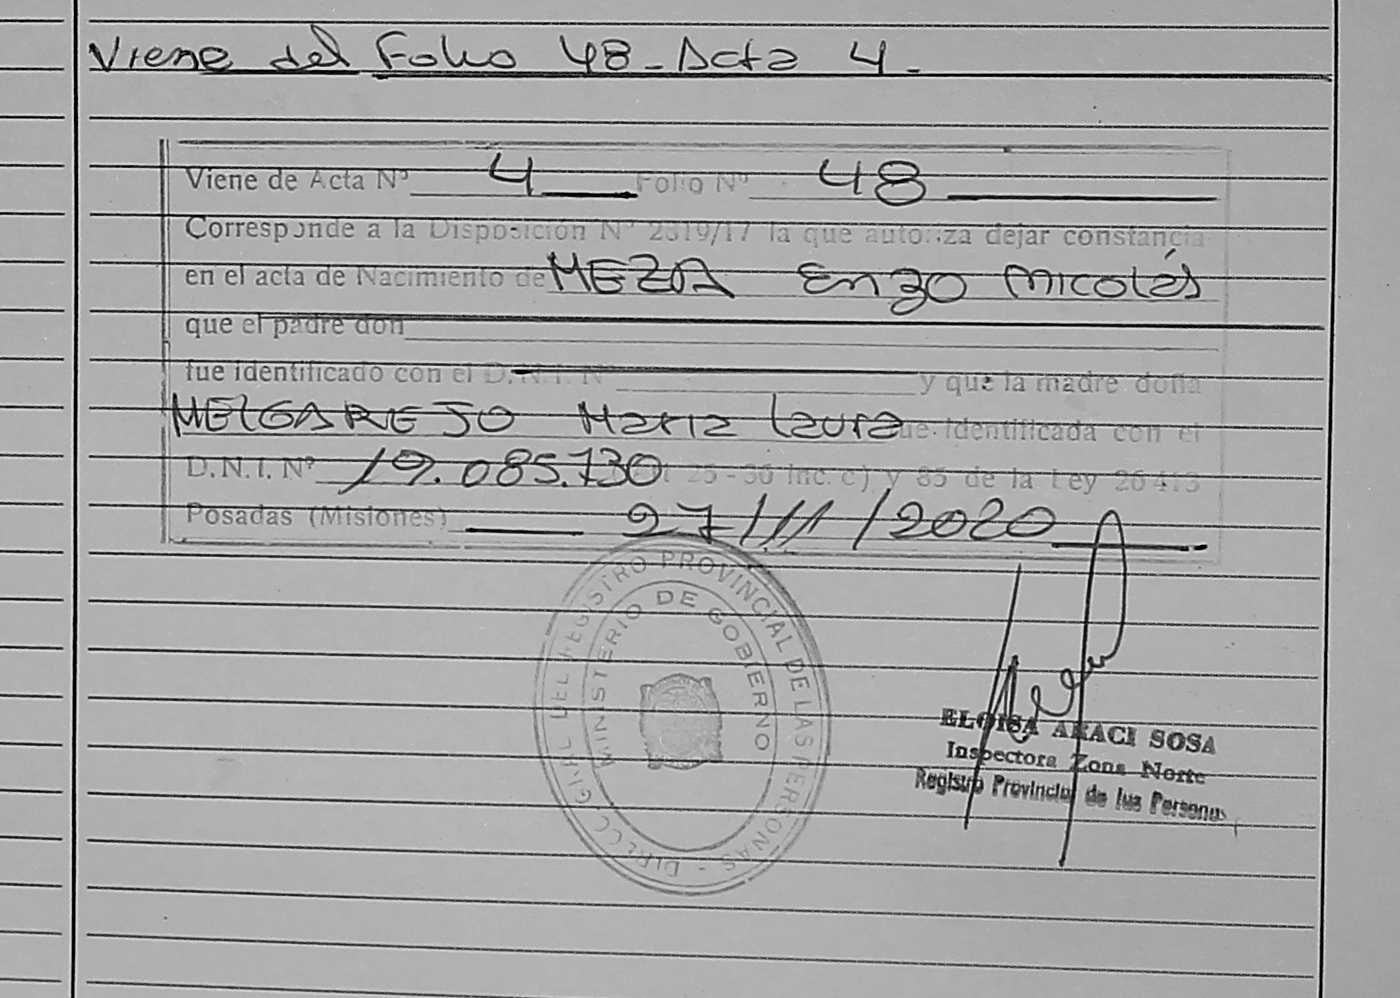 Viene del Folio 48 - Acta 4 -
Viene de Acta Nº 4 Folio Nº 48
Corresponde a la Disposición Nº 2319/17 la que autoriza dejar constancia
en el acta de Nacimiento de MEZA Enzo Nicolás
que el padre don
fue identificado con el D.N.I. Nº y que la madre doña
MELGAREJO Maria Laura fue identificada con el
D.N.I. Nº 19.085.730 25 - 36 Inc. c) y 85 de la Ley 26413
Posadas (Misiones) 27/11/2020
DIRECC. GRAL. DEL REGISTRO PROVINCIAL DE LAS PERSONAS -
MINISTERIO DE GOBIERNO
ELOISA ARACI SOSA
Inspectora Zona Norte
Registro Provincial de las Personas